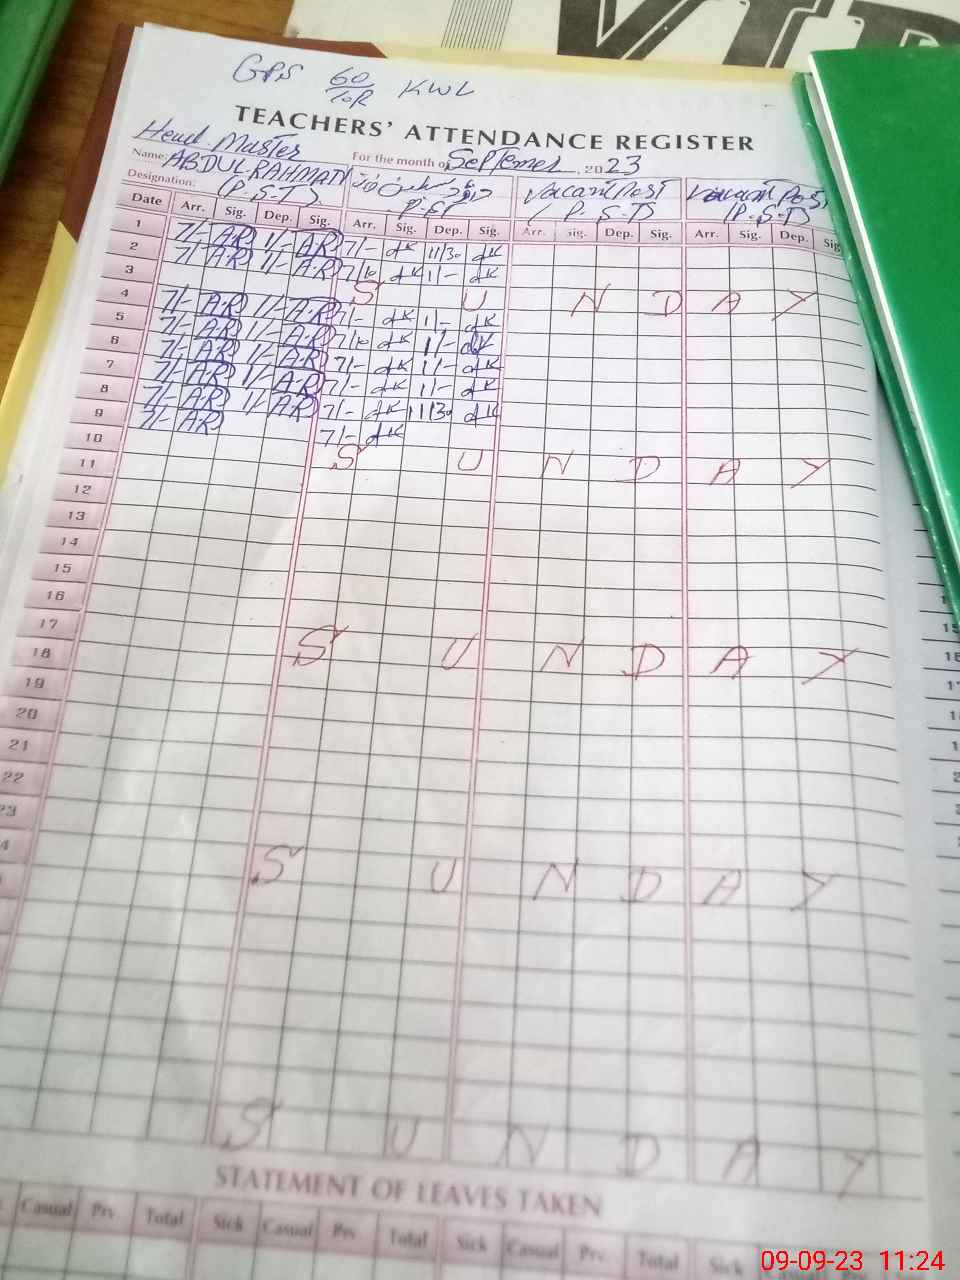 GPS 60/10R KWL
TEACHERS' ATTENDANCE REGISTER
Head Master
Name: ABDUL RAHMAN For the month of Septemer, 2023
Designation: (P.S.T) P.S.T Vacant Post (P.S.T) Vacant Post (P.S.T)
Date Arr. Sig. Dep. Sig. Arr. Sig. Dep. Sig. Arr. Sig. Dep. Sig. Arr. Sig. Dep. Sig
1 7/- AR 1/- AR 7/- dK 11/30 dK
2 7/- AR 1/- AR 7/10 dK 1/- dK
3 S U N D A Y
4 7/- AR 1/- AR 7/- dK 1/- dK
5 7/- AR 1/- AR 7/10 dK 1/- dK
6 7/- AR 1/- AR 7/- dK 1/- dK
7 7/- AR 1/- AR 7/- dK 1/- dK
8 7/- AR 1/- AR 7/- dK 11/30 dK
9 7/- AR 7/- dK
10 S U N D A Y
11
12
13
14
15
16
17 S U N D A Y
18
19
20
21
22
23
S U N D A Y
S U N D A Y
STATEMENT OF LEAVES TAKEN
Casual Prv. Total Sick Casual Prv. Total Sick Casual Prv. Total Sick
09-09-23 11:24